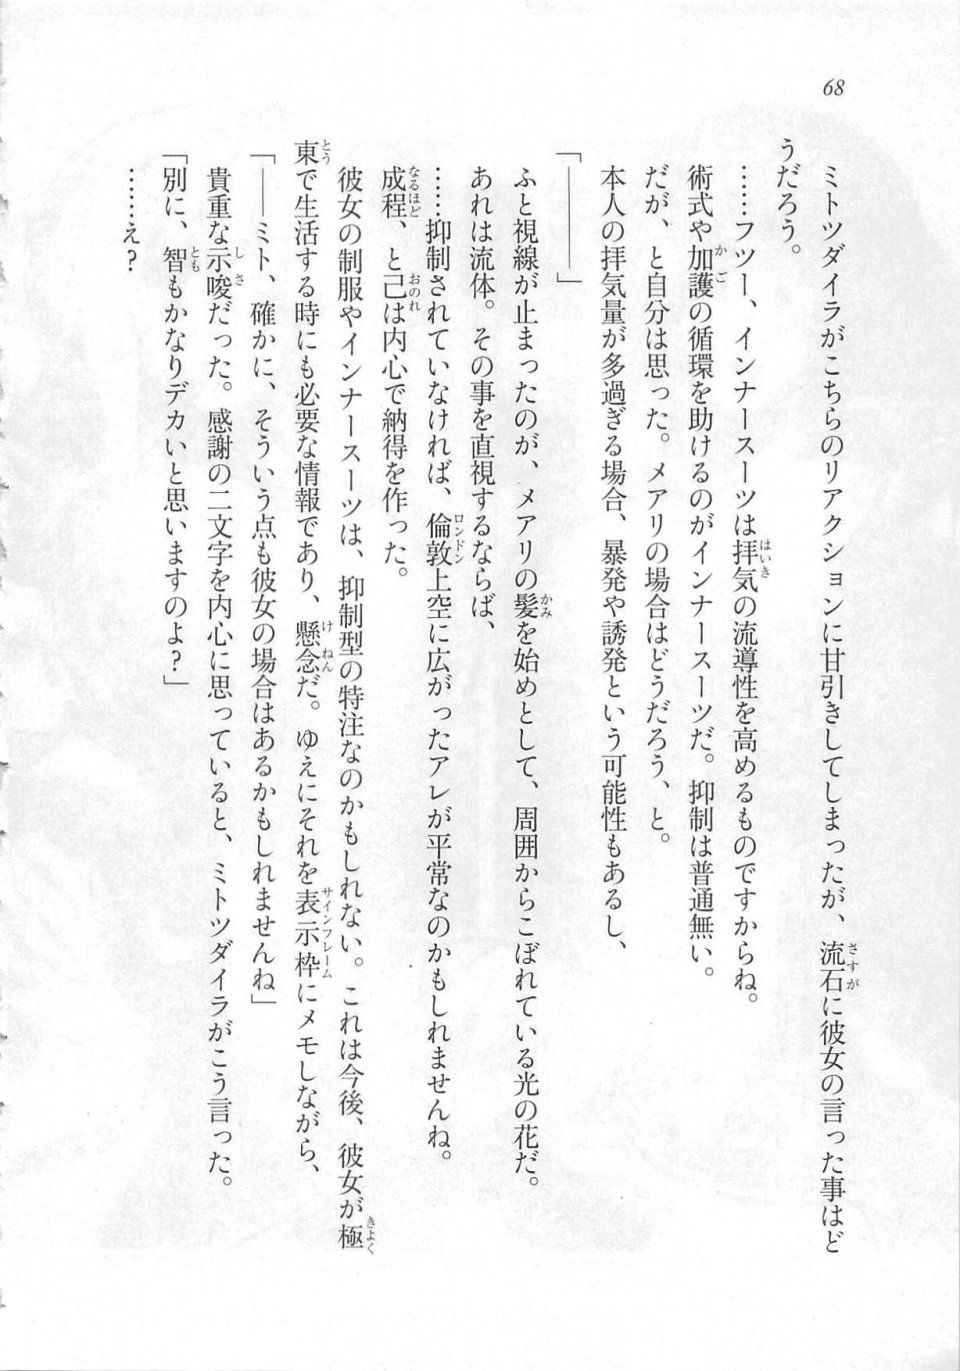 68
ミトツダイラがこちらのリアクションに甘引きしてしまったが、流石に彼女の言った事はど
うだろう。
……フツー、インナースーツは拝気の流導性を高めるものですからね。
術式や加護の循環を助けるのがインナースーツだ。抑制は普通無い。
だが、と自分は思った。メアリの場合はどうだろう、と。
本人の拝気量が多過ぎる場合、暴発や誘発という可能性もあるし、
「――――」
ふと視線が止まったのが、メアリの髪を始めとして、周囲からこぼれている光の花だ。
あれは流体。その事を直視するならば、
……抑制されていなければ、倫敦上空に広がったアレが平常なのかもしれませんね。
成程、と己は内心で納得を作った。
彼女の制服やインナースーツは、抑制型の特注なのかもしれない。これは今後、彼女が極
東で生活する時にも必要な情報であり、懸念だ。ゆえにそれを表示枠にメモしながら、
「――ミト、確かに、そういう点も彼女の場合はあるかもしれませんね」
貴重な示唆だった。感謝の二文字を内心に思っていると、ミトツダイラがこう言った。
「別に、智もかなりデカいと思いますのよ？」
……え？